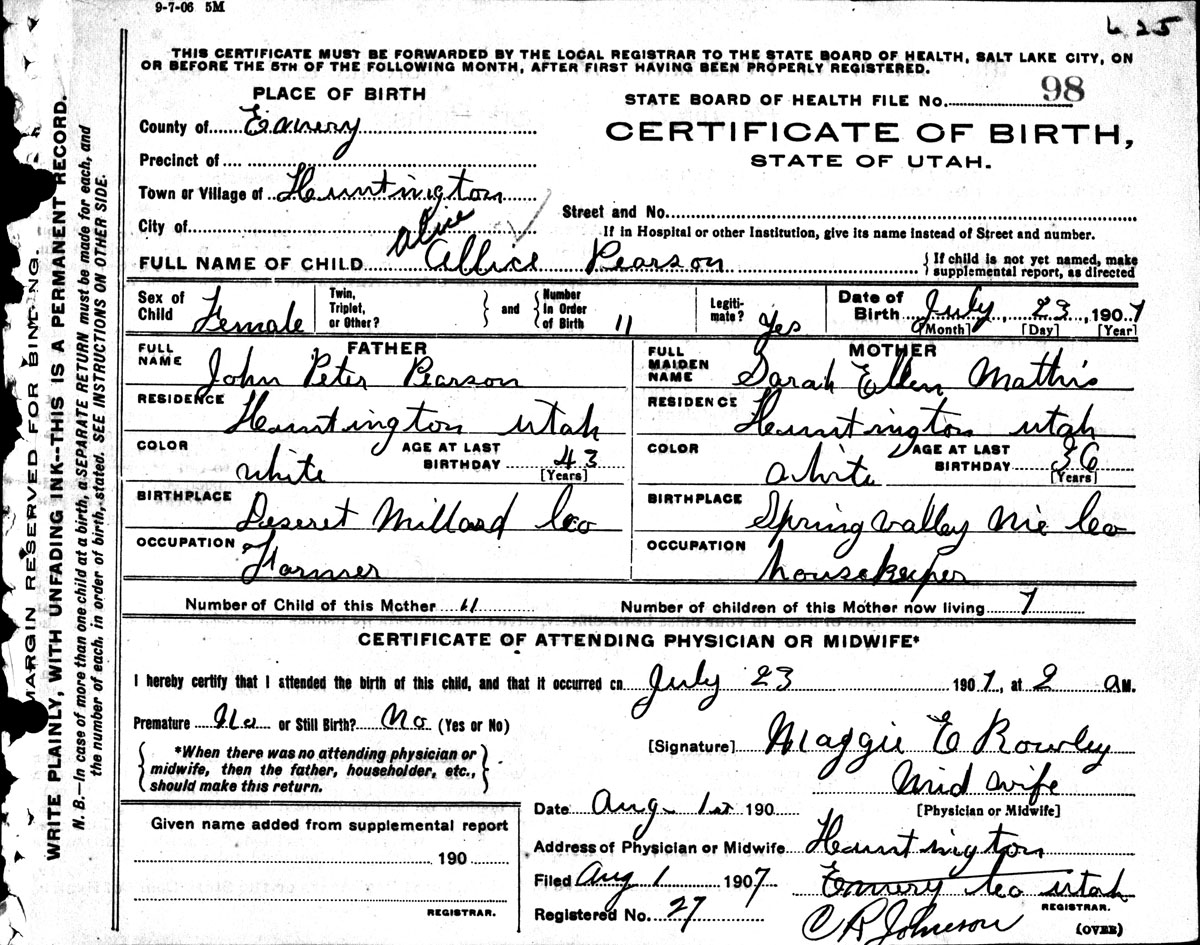 9-7-06 5M
625
THIS CERTIFICATE MUST BE FORWARDED BY THE LOCAL REGISTRAR TO THE STATE BOARD OF HEALTH, SALT LAKE CITY, ON
OR BEFORE THE 5TH OF THE FOLLOWING MONTH, AFTER FIRST HAVING BEEN PROPERLY REGISTERED.
PLACE OF BIRTH
STATE BOARD OF HEALTH FILE No. 98
County of Emery
CERTIFICATE OF BIRTH,
Precinct of
STATE OF UTAH.
Town or Village of Huntington
Street and No.
City of
If in Hospital or other Institution, give its name instead of Street and number.
Alice
FULL NAME OF CHILD Allice Pearson {If child is not yet named, make supplemental report, as directed
Sex of Child Female Twin, Triplet, or Other? } and { Number In Order of Birth 11 Legiti-mate? Yes Date of Birth July 23, 1907
[Month] [Day] [Year]
FATHER
FULL NAME John Peter Pearson
RESIDENCE Huntington utah
COLOR white AGE AT LAST BIRTHDAY 43 [Years]
BIRTHPLACE Deseret Millard Co
OCCUPATION Farmer
MOTHER
FULL MAIDEN NAME Sarah Ellen Mathis
RESIDENCE Huntington utah
COLOR white AGE AT LAST BIRTHDAY 36 [Years]
BIRTHPLACE Spring valley Co
OCCUPATION housekeeper
Number of Child of this Mother 11 Number of children of this Mother now living 7
CERTIFICATE OF ATTENDING PHYSICIAN OR MIDWIFE*
I hereby certify that I attended the birth of this child, and that it occurred on July 23 1907, at 2 a M.
Premature No or Still Birth? No (Yes or No)
{*When there was no attending physician or
midwife, then the father, householder, etc.,
should make this return.}
[Signature] Maggie E Rowley
Mid wife
[Physician or Midwife]
Date Aug 1st 190
Address of Physician or Midwife Huntington
Emery Co utah
Filed Aug 1 1907
Registered No. 27
C R Johnson
REGISTRAR.
(OVER)
Given name added from supplemental report
190
REGISTRAR.
MARGIN RESERVED FOR BINDING.
WRITE PLAINLY, WITH UNFADING INK--THIS IS A PERMANENT RECORD.
N. B.—In case of more than one child at a birth, a SEPARATE RETURN must be made for each, and
the number of each, in order of birth, stated. SEE INSTRUCTIONS ON OTHER SIDE.